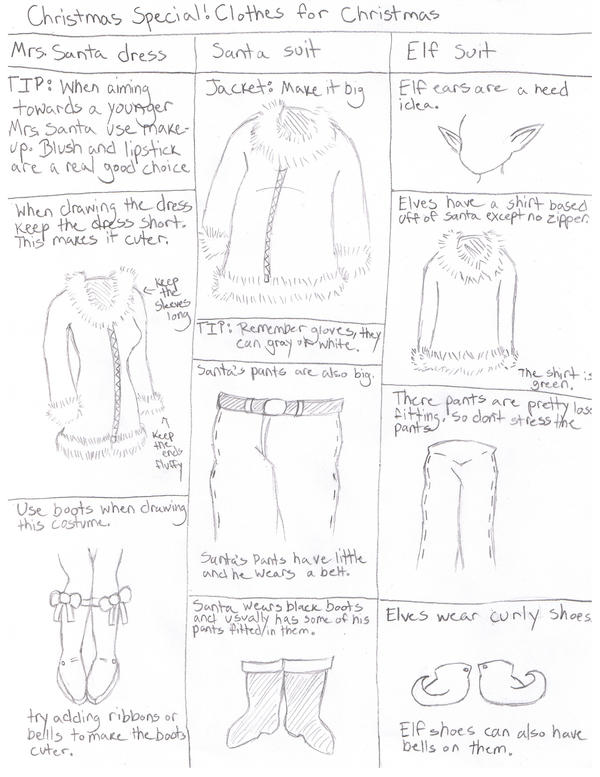 Christmas Special! Clothes for Christmas
Mrs. Santa dress
TIP: When aiming
towards a younger
Mrs. Santa use make-
up. Blush and lipstick
are a real good choice
When drawing the dress
keep the dress short.
This makes it cuter.
Keep
the
sleeves
long
Keep
the
ends
fluffy
Use boots when drawing
this costume.
try adding ribbons or
bells to make the boots
cuter.
Santa suit
Jacket: Make it big
TIP: Remember gloves, they
can gray or white.
Santa's pants are also big.
Santa's Pants have little
and he wears a belt.
Santa wears black boots
and usually has some of his
pants fitted in them.
Elf Suit
Elf ears are a need
idea.
Elves have a shirt based
off of santa except no zipper.
The shirt is
green.
There pants are pretty loss
fitting, so don't stress the
pants
Elves wear curly shoes.
Elf shoes can also have
bells on them.